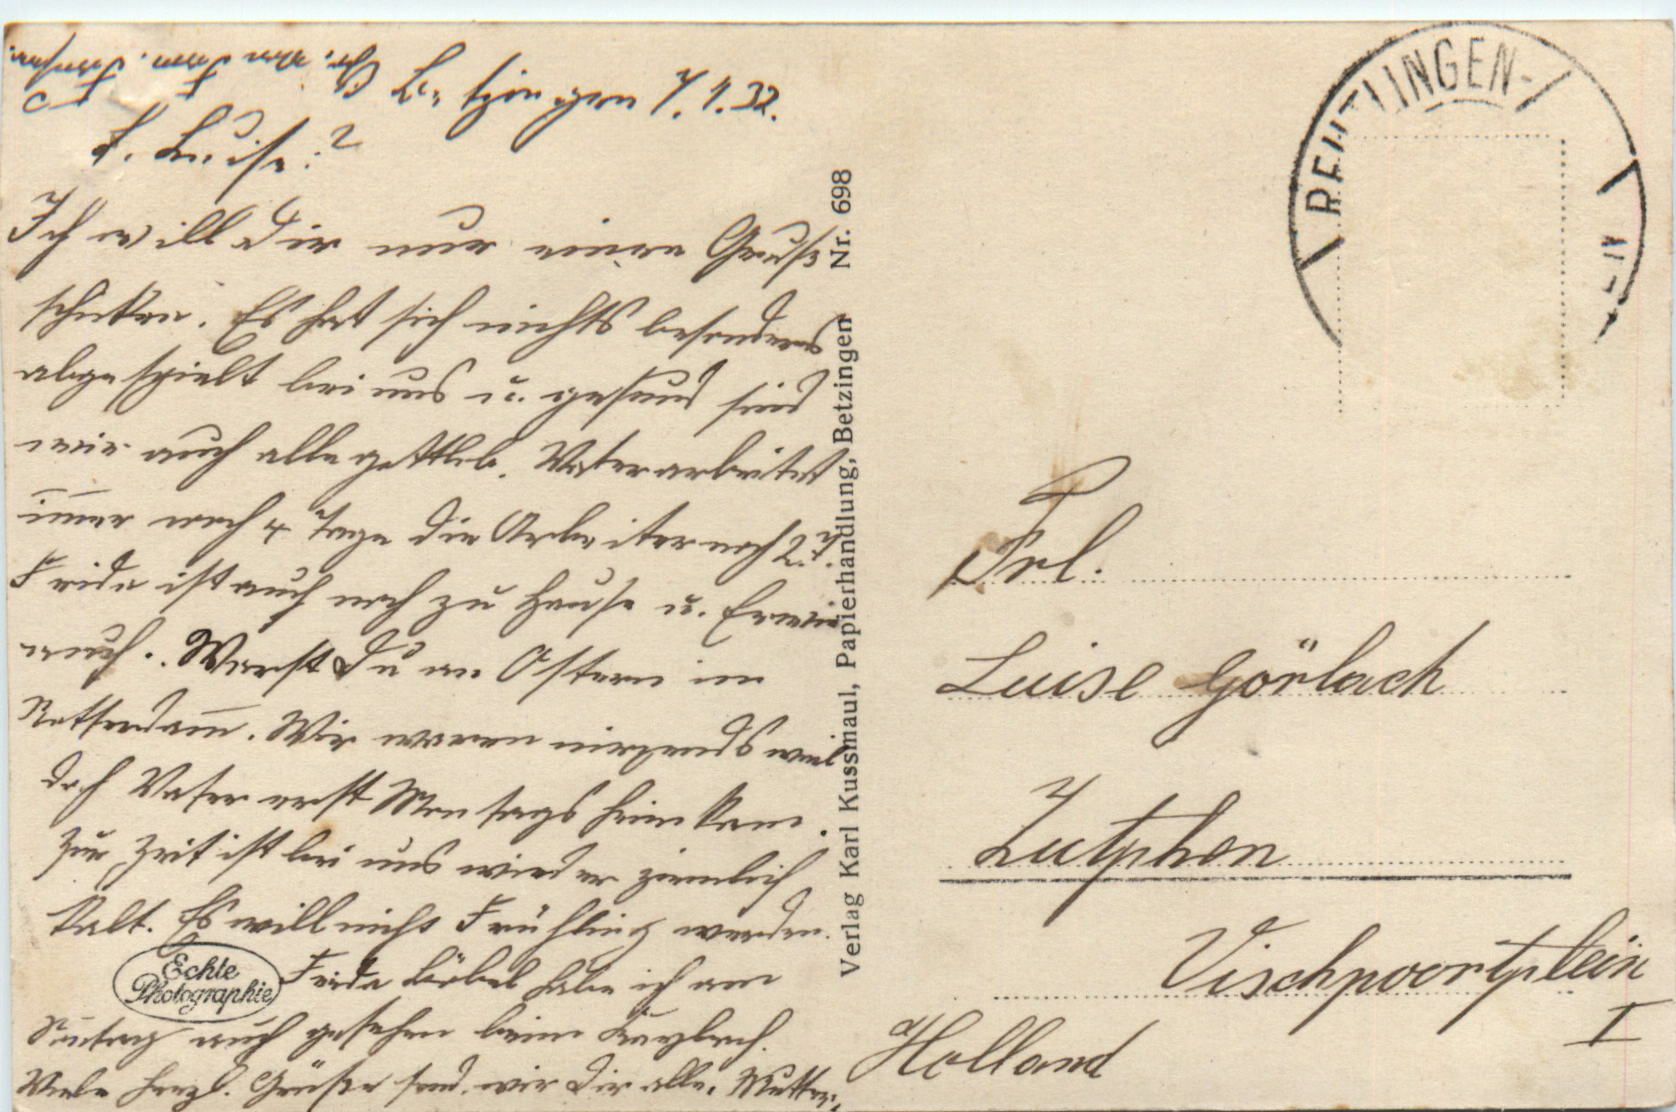 Betzingen 7.4.32.
L. Luise!
Ich will Dir nur einen Gruß
schicken. Es hat sich nichts besonders
abgespielt bei uns u. gesund sind
wir auch alle gottlob. Vater arbeitet
im̅er noch 4 Tage die Arbeiter noch 2. T.
Frida ist auch noch zu Hause u. Erwin
auch. Warst Du an Ostern in
Rotterdam̅. Wir waren nirgends weil
doch Vater erst Montags heim kam.
Zur Zeit ist bei uns wieder ziemlich
kalt. Es will nicht Frühling werden.
Frida habe ich am
Sontag auch gesehen beim
Viele herzl. Grüße send. wir Dir alle. Mutter.
Echte
Photographie
Verlag Karl Kussmaul, Papierhandlung, Betzingen Nr. 698
REUTLINGEN
Frl.
Luise Görlach
Zutphen
Vischpoortplein
I
Holland